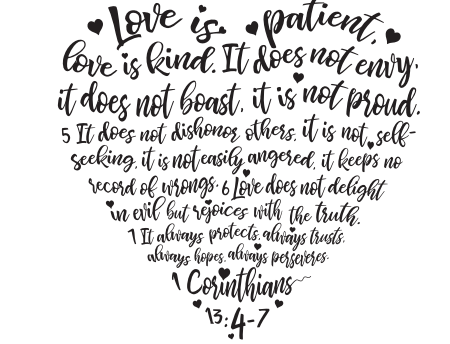 Love is patient,
love is kind. It does not envy,
it does not boast, it is not proud.
5 It does not dishonor others, it is not self-
seeking, it is not easily angered, it keeps no
record of wrongs. 6 Love does not delight
in evil but rejoices with the truth.
7 It always protects, always trusts,
always hopes, always perseveres.
1 Corinthians
13:4-7